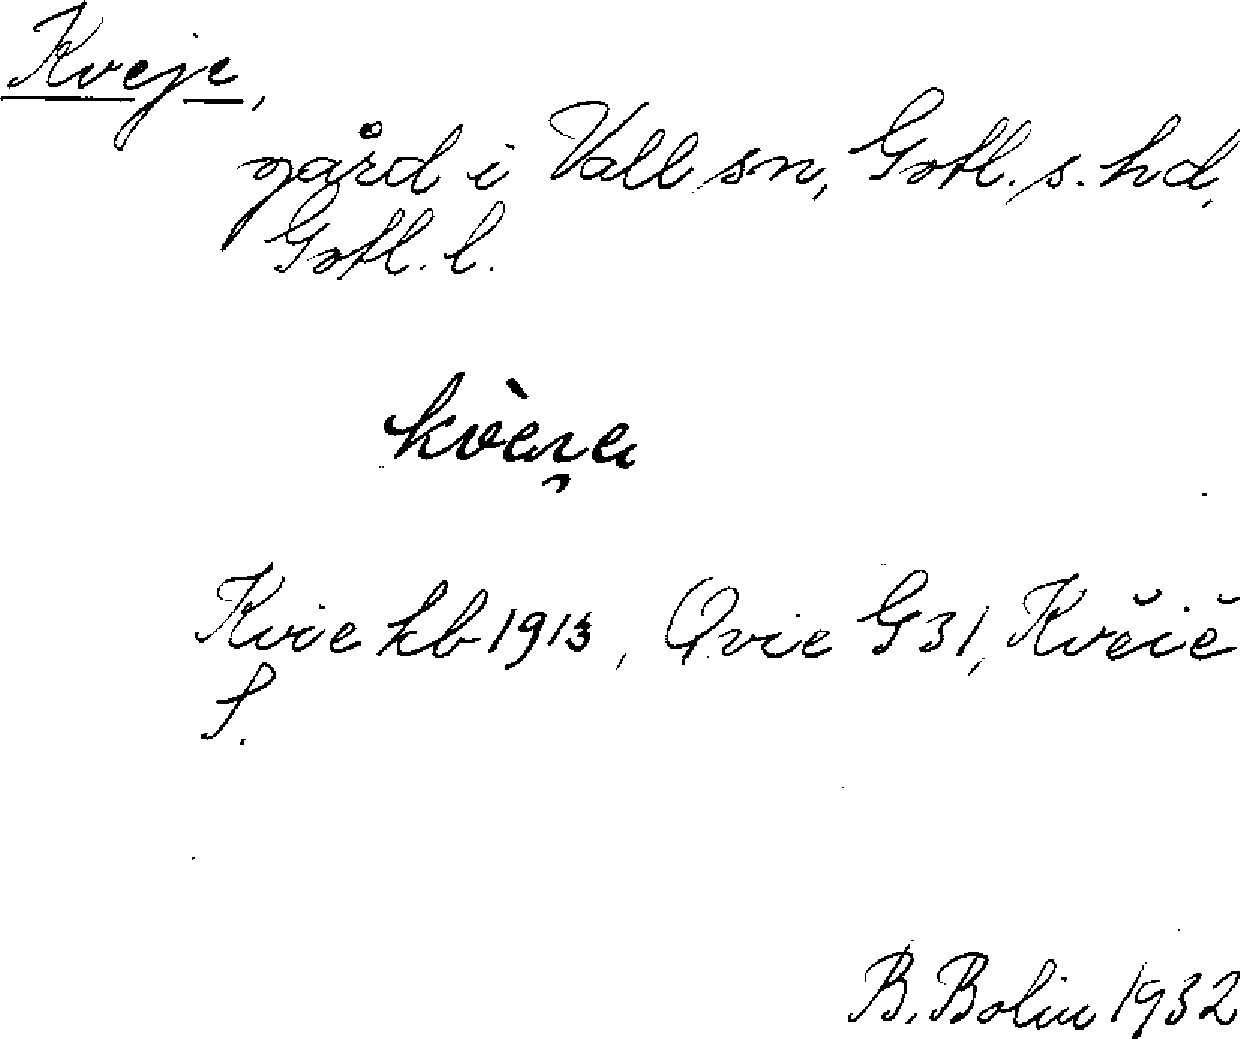 Kveje,
gård i Vall sn, Gotl. s. hd,
Gotl. l.
Kvie kb 1913, Qvie G 31, Kvĕiĕ
S.
B. Bolin 1932